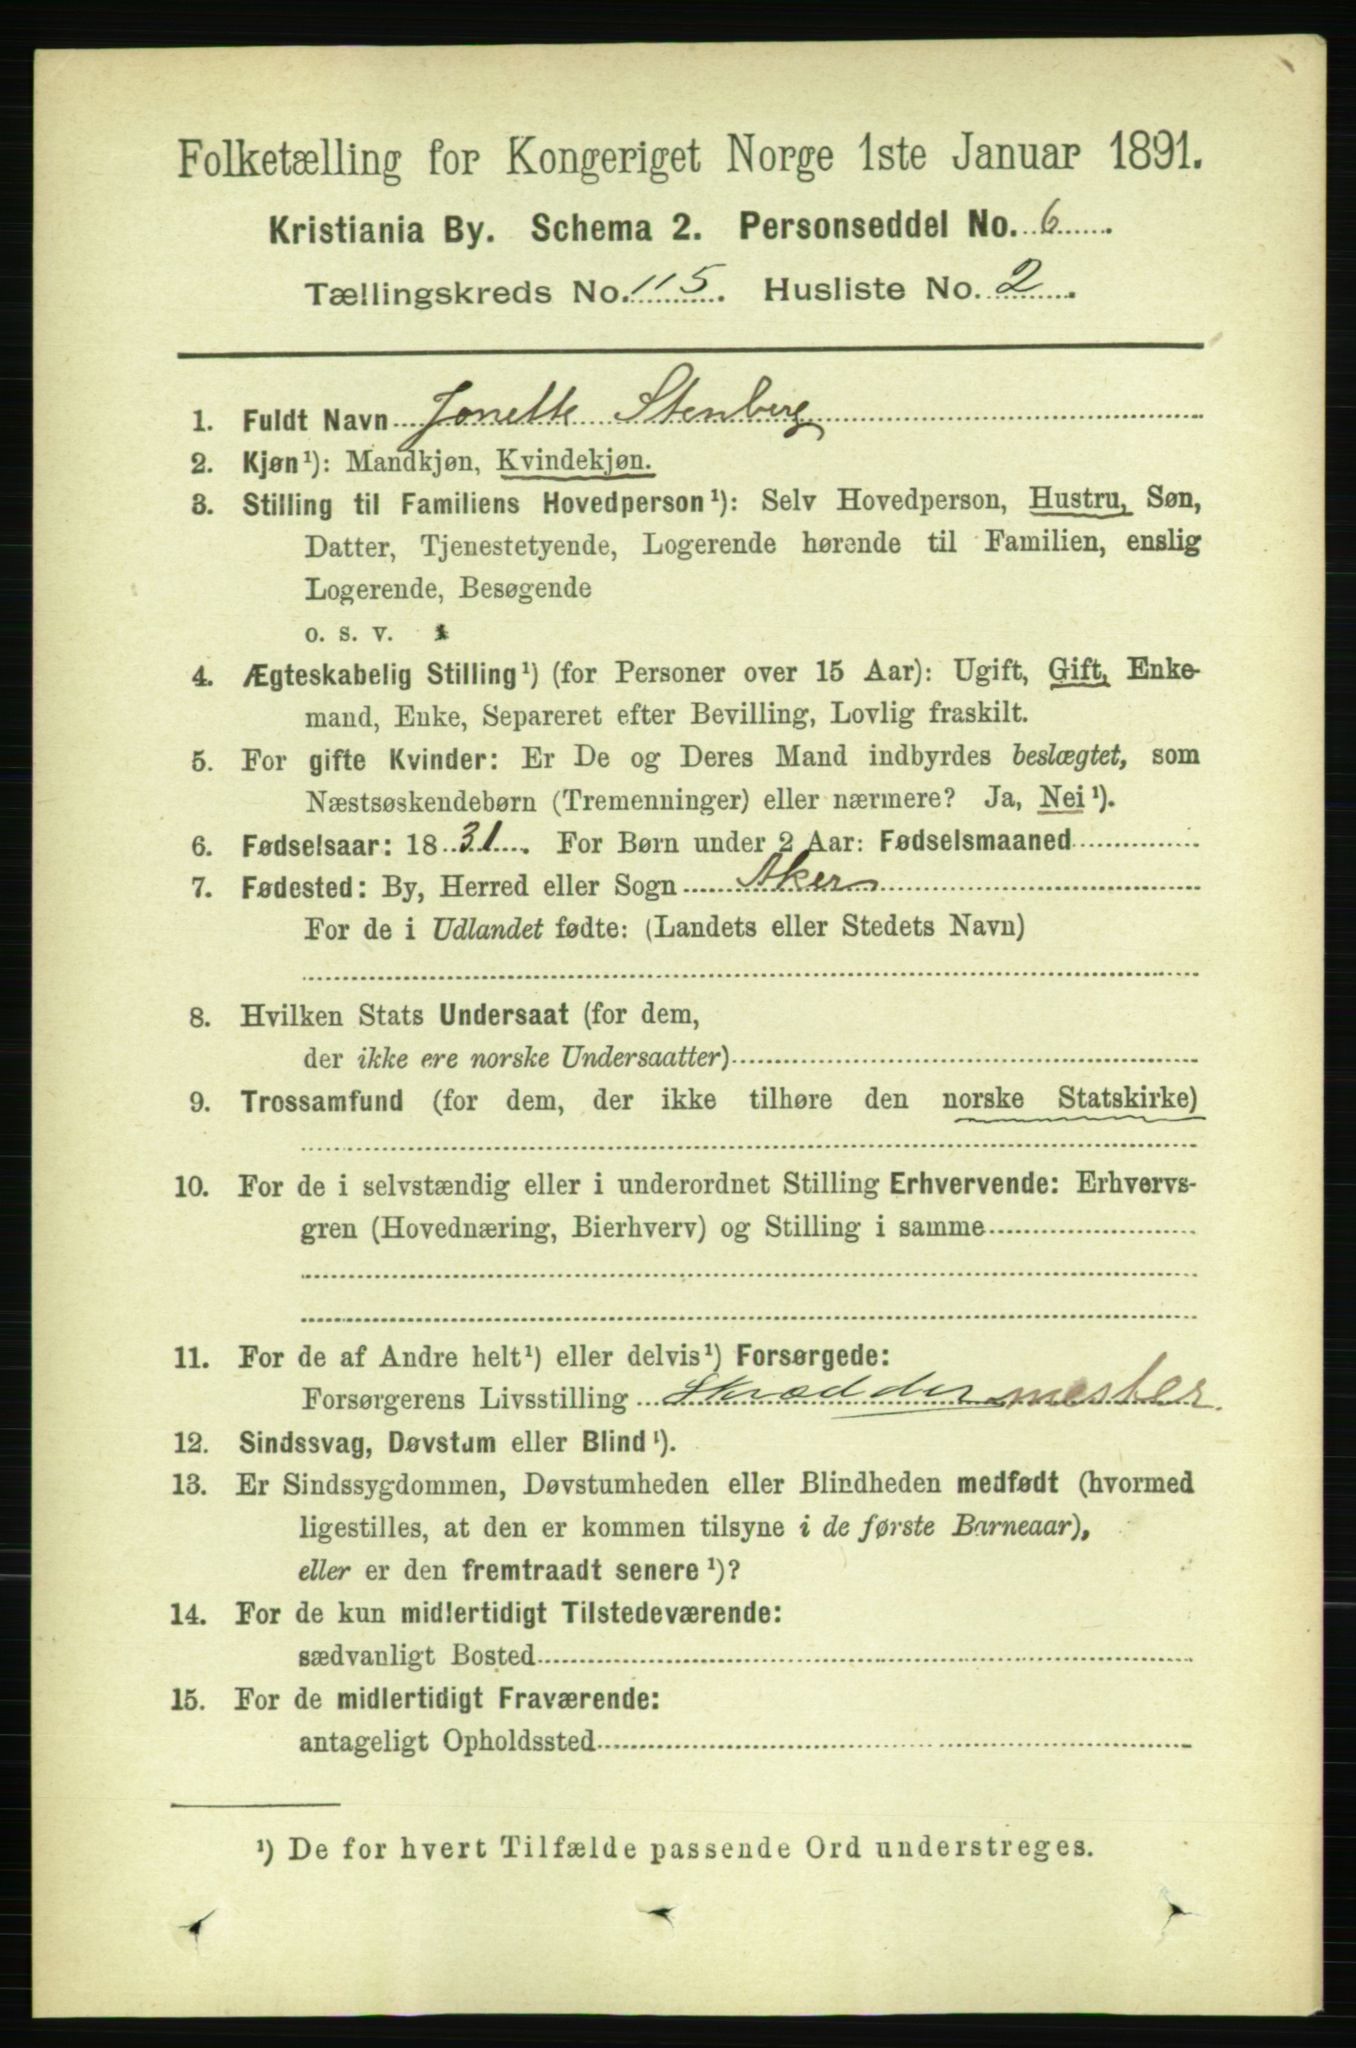 Folketælling for Kongeriget Norge 1ste Januar 1891.
Kristiania By. Schema 2. Personseddel No. 6
Tællingskreds No. 115. Husliste No. 2.
1. Fuldt Navn Jonette Stenberg
2. Kjøn¹): Mandkjøn, Kvindekjøn.
3. Stilling til Familiens Hovedperson¹): Selv Hovedperson, Hustru, Søn,
Datter, Tjenestetyende, Logerende hørende til Familien, enslig
Logerende, Besøgende
o. s. v.
4. Ægteskabelig Stilling¹) (for Personer over 15 Aar): Ugift, Gift, Enke-
mand, Enke, Separeret efter Bevilling, Lovlig fraskilt.
5. For gifte Kvinder: Er De og Deres Mand indbyrdes beslægtet, som
Næstsøskendebørn (Tremenninger) eller nærmere? Ja, Nei¹).
6. Fødselsaar: 1831. For Børn under 2 Aar: Fødselsmaaned
7. Fødested: By, Herred eller Sogn Aker
For de i Udlandet fødte: (Landets eller Stedets Navn)
8. Hvilken Stats Undersaat (for dem,
der ikke ere norske Undersaatter)
9. Trossamfund (for dem, der ikke tilhøre den norske Statskirke)
10. For de i selvstændig eller i underordnet Stilling Erhvervende: Erhvervs-
gren (Hovednæring, Bierhverv) og Stilling i samme
11. For de af Andre helt¹) eller delvis¹) Forsørgede:
Forsørgerens Livsstilling Skræddermester
12. Sindssvag, Døvstum eller Blind¹).
13. Er Sindssygdommen, Døvstumheden eller Blindheden medfødt (hvormed
ligestilles, at den er kommen tilsyne i de første Barneaar),
eller er den fremtraadt senere¹)?
14. For de kun midlertidigt Tilstedeværende:
sædvanligt Bosted
15. For de midlertidigt Fraværende:
antageligt Opholdssted
¹) De for hvert Tilfælde passende Ord understreges.